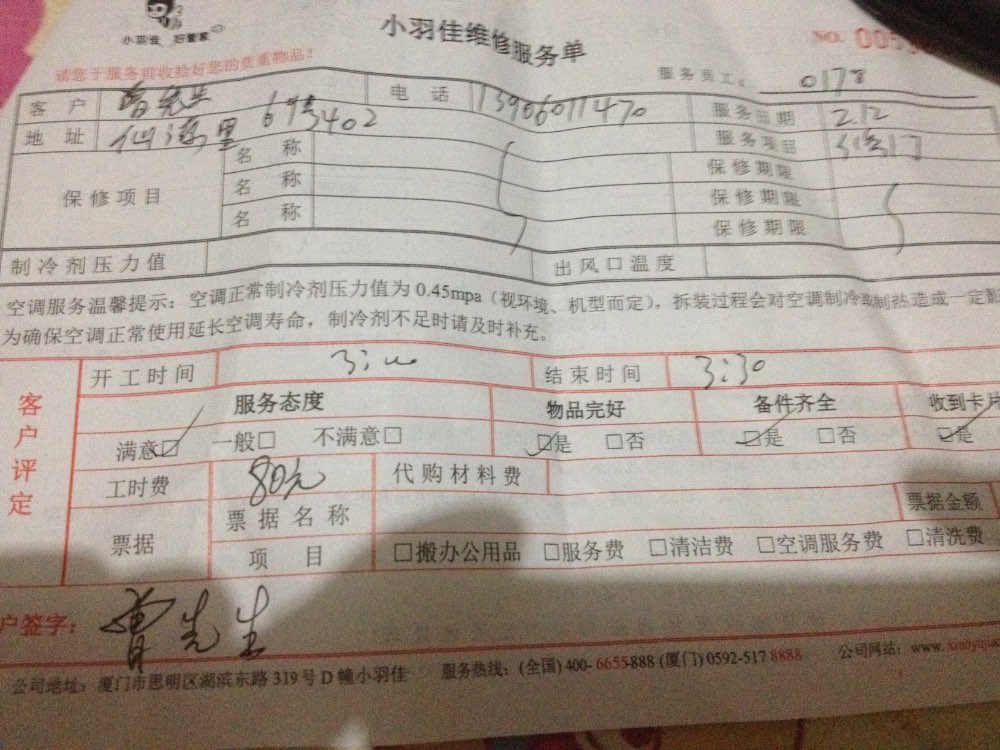 小羽佳 好管家
小羽佳维修服务单
NO. 005
请您于服务前收拾好您的贵重物品！
服务员工： 0178
客户 曾先生 电话 13906011470 服务日期 2.12
地址 仙海里 69号402 服务项目 修门
保修项目 名称 保修期限
名称 保修期限
名称 保修期限
制冷剂压力值 出风口温度
空调服务温馨提示：空调正常制冷剂压力值为 0.45mpa（视环境、机型而定），拆装过程会对空调制冷或制热造成一定影
为确保空调正常使用延长空调寿命，制冷剂不足时请及时补充。
客户评定
开工时间 结束时间 3:30
服务态度 物品完好 备件齐全 收到卡片
满意☑ 一般□ 不满意□ ☑是 □否 ☑是 □否 ☑是
工时费 80元 代购材料费
票据 票据名称 票据金额
项目 □搬办公用品 □服务费 □清洁费 □空调服务费 □清洗费
户签字： 曾先生
公司地址：厦门市思明区湖滨东路 319 号 D 幢小羽佳 服务热线：(全国) 400- 6655-888 (厦门) 0592-517 8888 公司网站：www.xiaoyu